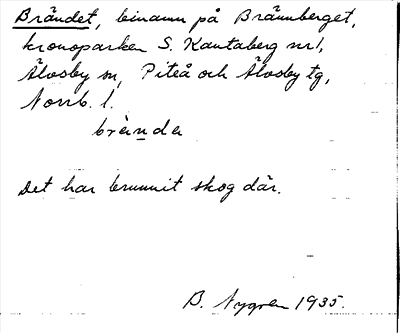 Brändet, binamn på Brännberget,
kronoparken S. Kantaberg nr 1,
Älvsby sn, Piteå och Älvsby tg,
Norrb. l.
brända
Det har brunnit skog där.
B. Nygren 1935.